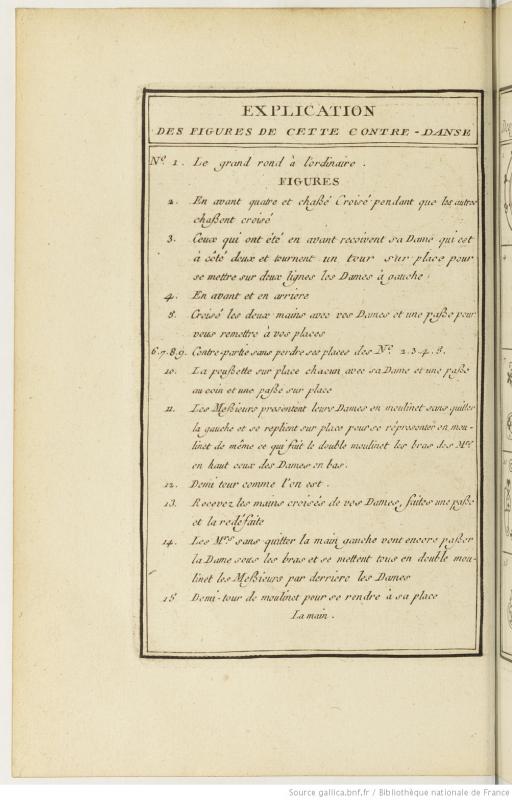 EXPLICATION
DES FIGURES DE CETTE CONTRE-DANSE
No. 1. Le grand rond à l'ordinaire.
FIGURES
2. En avant quatre et chaßé Croisé pendant que les autres
chaßent croisé
3. Ceux qui ont été en avant recoivent sa Dame qui est
à côté deux et tournent un tour sur place pour
se mettre sur deux lignes les Dames à gauche.
4. En avant et en arriere
5. Croisé les deux mains avec vos Dames et une paße pour
vous remettre à vos places
6.7.8.9. Contre-partie sans perdre ses places des No. 2.3.4.5.
10. La poußette sur place chacun avec sa Dame et une paße
au coin et une paße sur place
11. Les Meßieurs presentent leurs Dames en moulinet sans quitter
la gauche et se replient sur place pour se répresenter en mou-
linet de même ce qui fait le double moulinet les bras des Mrs.
en haut ceux des Dames en bas.
12. Demi tour comme l'on est.
13. Recevez les mains croisés de vos Dames, faites une paße
et la redéfaite
14. Les Mrs. sans quitter la main gauche vont encore paßer
la Dame sous les bras et se mettent tous en double mou-
linet les Meßieurs par derriere les Dames
15. Demi-tour de moulinet pour se rendre à sa place
La main.
Source gallica.bnf.fr / Bibliothèque nationale de France